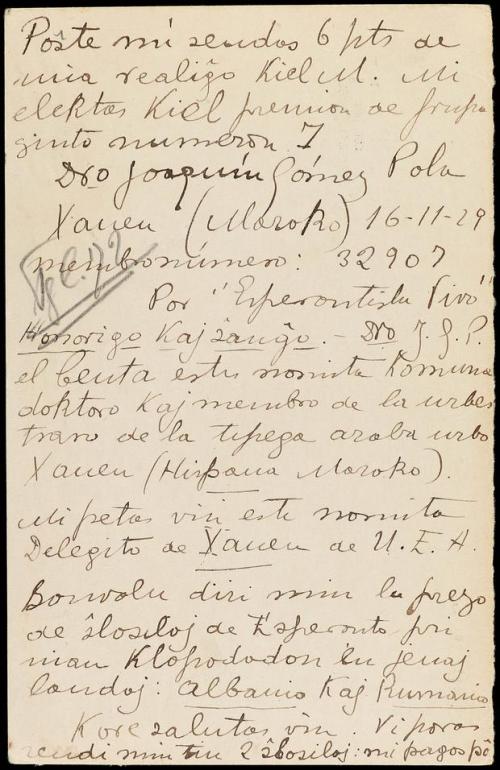 Poste mi sendos 6 pts de
mia realiĝo Kiel M. Mi
elektas Kiel premion de grupa
ginto numeron 7
Dro Joaquín Gómez Pola
Xauen (Maroko) 16-11-29
membronúmero: 32907
Por "Esperontista Vivo"
Honorigo Kaj ŝanĝo. - Dro J. G. P.
el Ceuta estis nomita Komuna
doktoro Kaj membro de la urbes
traro de la tipega araba urbo
Xauen (Hispana Maroko).
Mi petas vin esti nomita
Delegito de Xauen de U. E. A.
Bonvolu diri min la prezo
de ŝlosiloj de Esperanto pri
mian Klopodadon en jenaj
landoj: Albanio Kaj Rumanio
Kore salutas vin. Vi povas
sendi min tiu 2 ŝlosiloj: mi pagos pô